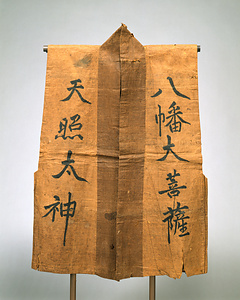 八幡大菩薩
天照太神